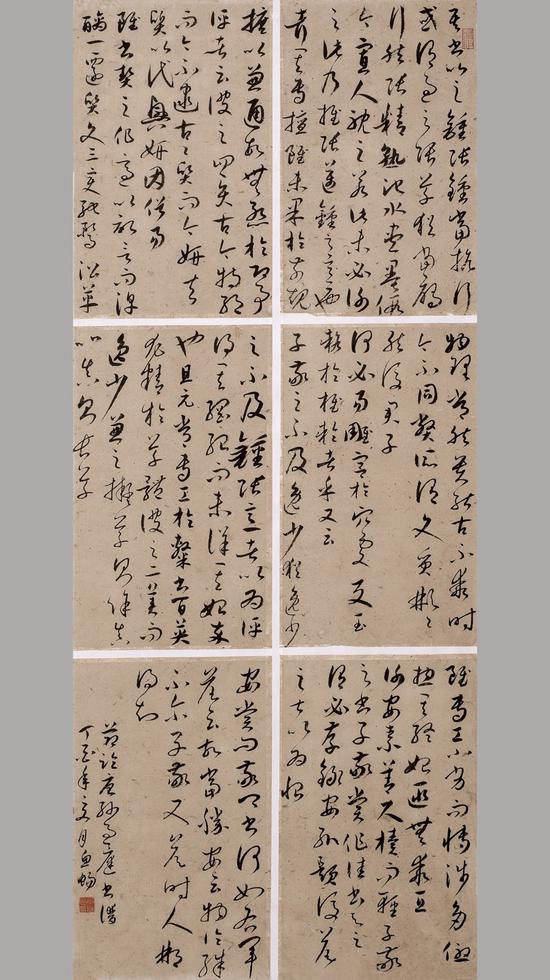 吾書比之鍾張鍾當抗行
或謂過之張草猶當雁
行然張精熟池水盡墨假
令寡人耽之若此未必謝
之此乃推張邁鍾之意也
考其專擅雖未果於前規
摭以兼通故無慚於即事
評者云彼之四賢古今特絕
而今不逮古古質而今妍夫
質以代興妍因俗易
雖書契之作適以記言而淳
醨一遷質文三變馳騖沿革
物理常然貴能古不乖時
今不同弊所謂文質彬彬
然後君子
何必易雕宮於穴處反玉
輅於椎輪者乎又云
子敬之不及逸少猶逸少
之不及鍾張意者以為評
得其綱紀而未詳其始卒
也且元常專工於隸書百英
尤精於草體彼之二美而
逸少兼之擬草則餘真
比真則長草
雖專工小劣而博涉多優
總其終始匪無乖互
謝安素善尺牘而輕子敬
之書子敬嘗作佳書與之
謂必存錄安輒題後答
之甚以為恨
安嘗問敬卿書何如右軍
答云故當勝安云物論殊
不爾子敬又答時人那
得知
節臨唐孫過庭書譜
丁酉年月